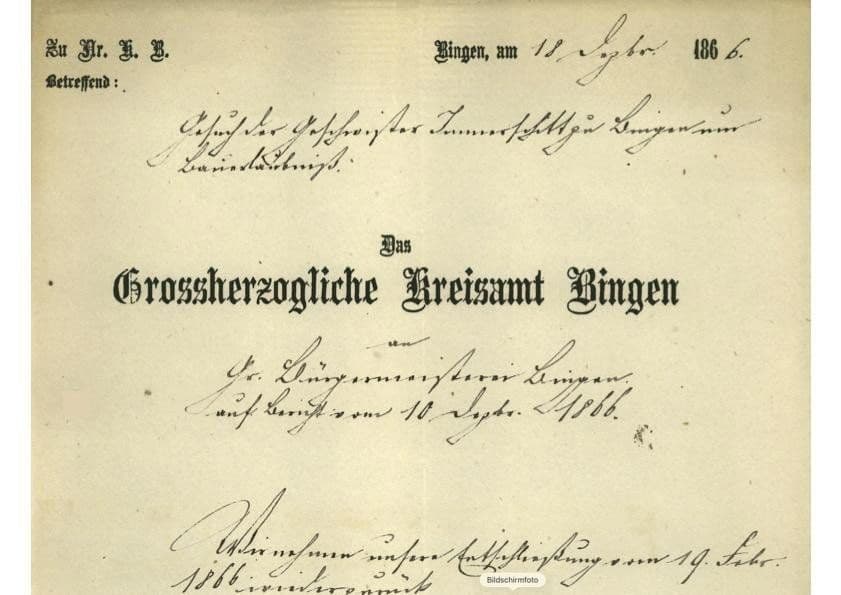 Zu Nr. K. B.
Bingen, am 18 Dezbr. 1866.
Betreffend:
Gesuch der Geschwister Immerschitt zu Bingen um
Bauerlaubniß.
Das
Grossherzogliche Kreisamt Bingen
an
Gr. Bürgermeisterei Bingen.
auf Bericht vom 10 Dezbr. 1866.
Wir nehmen unsere Entschließung vom 19. Febr.
1866 wieder zurück
Bildschirmfoto